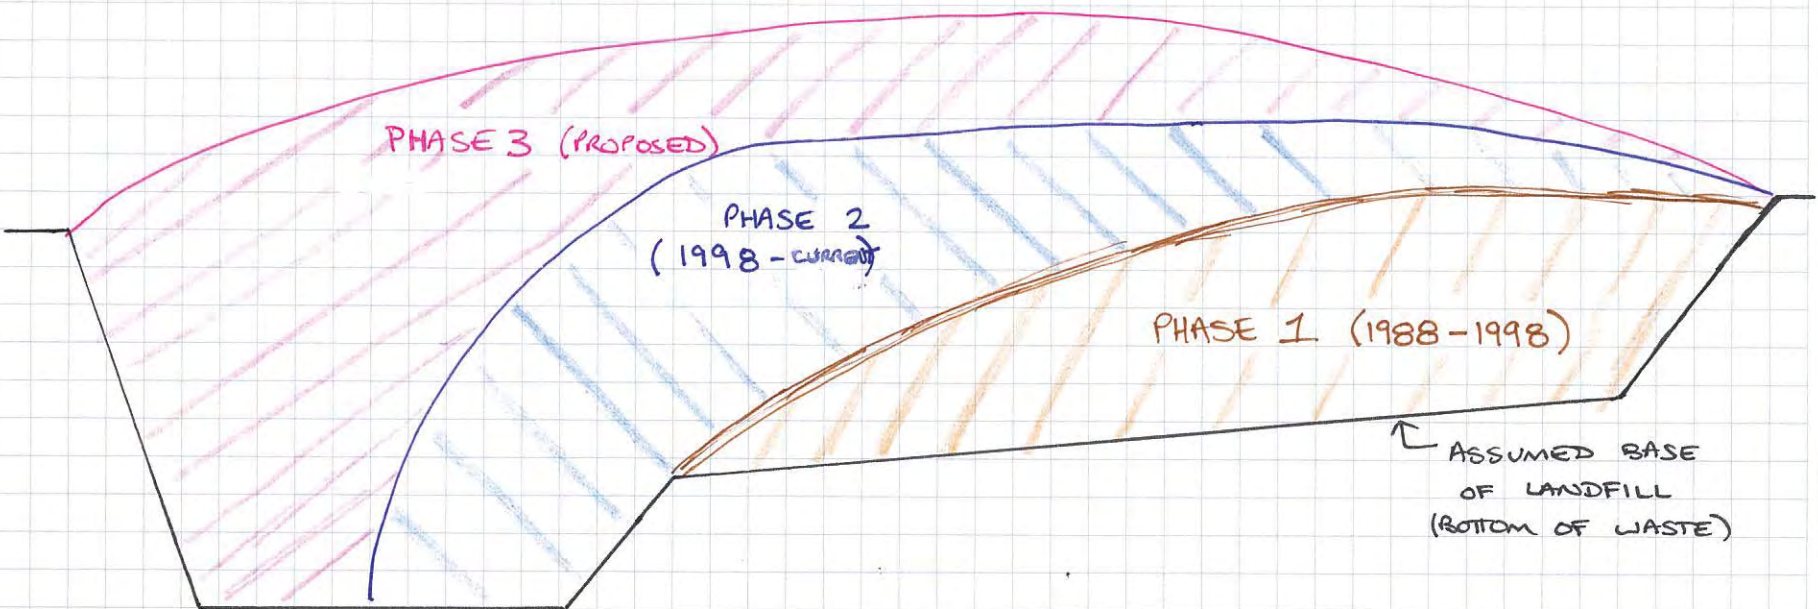 PHASE 3 (PROPOSED)
PHASE 2
(1998 - CURRENT)
PHASE 1 (1988-1998)
ASSUMED BASE
OF LANDFILL
(BOTTOM OF WASTE)